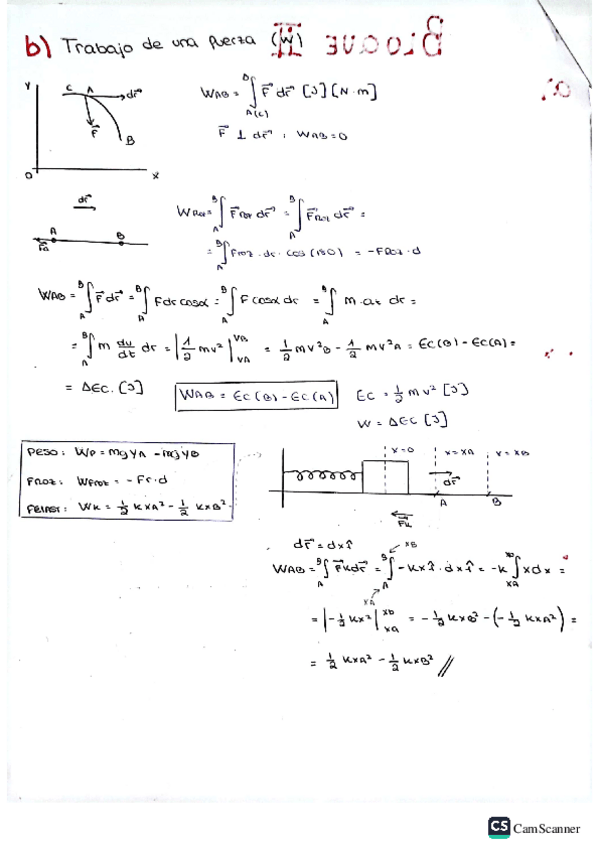 b) Trabajo de una fuerza (W)
Y
C A dr⃗
F⃗
B
O
X
WAB = ∫ F⃗ dr⃗ [J] [N·m]
B
A(C)
F⃗ ⊥ dr⃗ ; WAB = 0
dr⃗
A B
WRoz = ∫ F⃗roz dr⃗ = ∫ F⃗roz dr⃗ =
= ∫ Froz · dr · cos (180) = -Froz · d
WAB = ∫ F⃗ dr⃗ = ∫ F dr cosα = ∫ F cosα dr = ∫ m · at dr =
= ∫ m dv/dt dr = |1/2 mv²| = 1/2 mv²B - 1/2 mv²A = Ec(B) - Ec(A) =
= ΔEC. [J]
WAB = Ec(B) - Ec(A)
Ec = 1/2 mv² [J]
W = ΔEC [J]
PESO: Wp = mgyA - mgyB
FROZ: WFROZ = -Fr · d
FELAST: WK = 1/2 KxA² - 1/2 KxB²
x=0 x=xA x=xB
dr⃗
A B
F⃗k
dr⃗ = dx î
WAB = ∫ F⃗k dr⃗ = ∫ -Kx î · dx î = -K ∫ x dx =
= |-1/2 Kx²| = -1/2 KxB² - (-1/2 KxA²) =
= 1/2 KxA² - 1/2 KxB² //
CS CamScanner